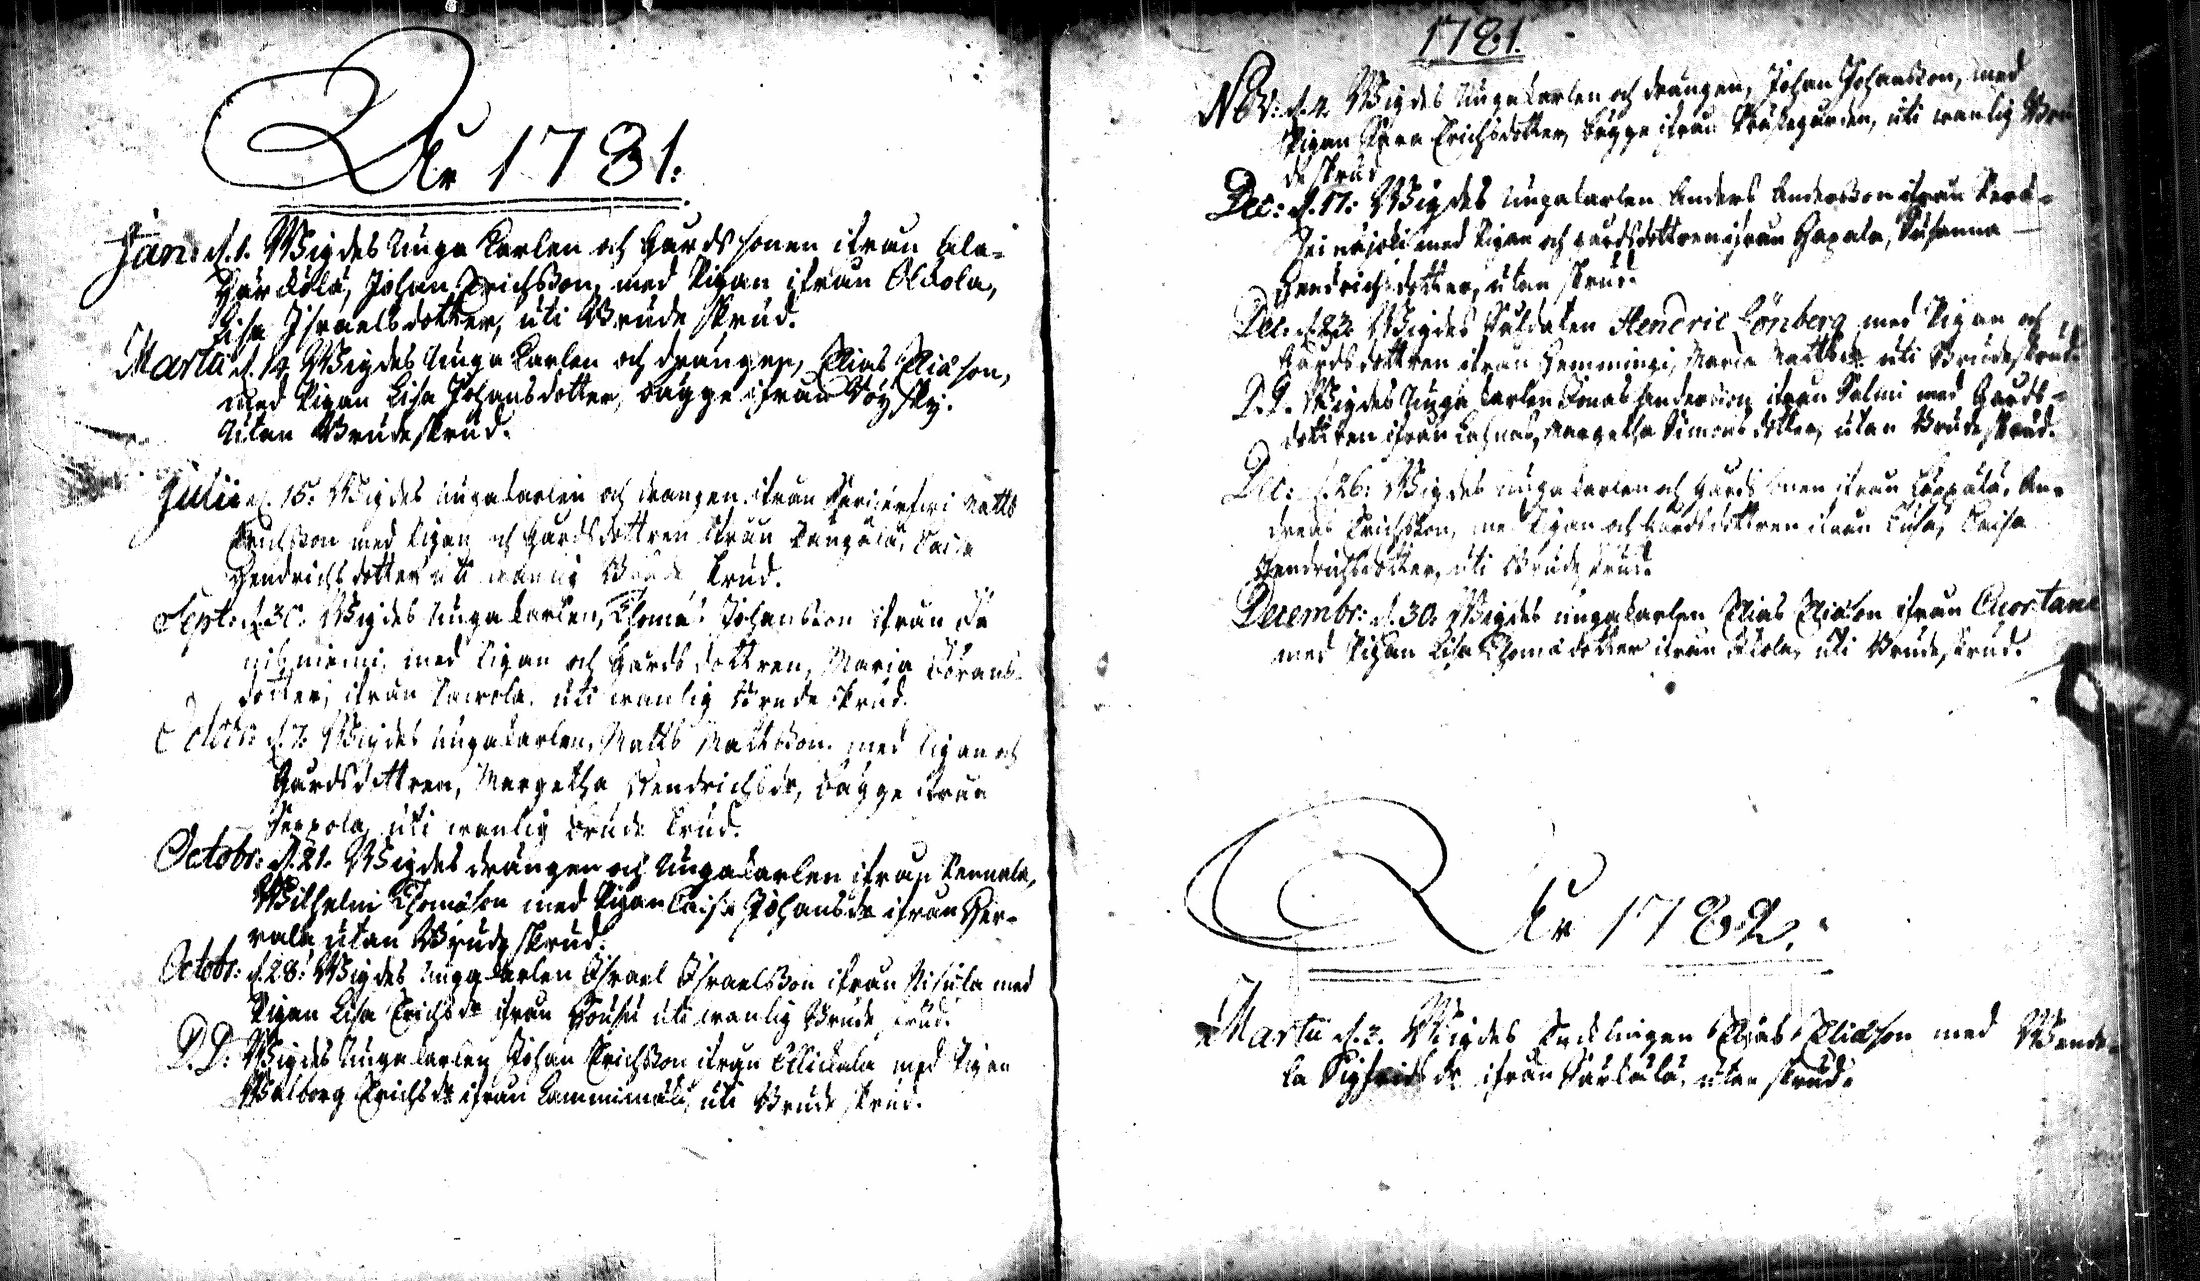 År 1781.
Jan: d. 1. Wigdes Unga Karlen och Gårdssonen ifrån Ala-
Härkölä, Johan Erichsson, med Pigan ifrån Alkola,
Lisa Israelsdotter, uti Brude skrud.
Martii d. 14. Wigdes Unga Karlen och drängen, Elias Eliæson,
med Pigan Lisa Johansdotter, bägge ifrån
Utan Brudeskrud.
Julii d. 15. Wigdes ungakarlen och drängen ifrån Matts
Erichsson med Pigan och Gårdsdottren ifrån Caisa
Hendrichsdotter uti wanlig Brude skrud.
Sept: d. 30. Wigdes Ungakarlen, Thomas Johansson ifrån
med Pigan och Gårdsdottren, Maria Görans-
dotter, ifrån uti wanlig Brude skrud.
Octobr: d. 7. Wigdes Ungakarlen, Matts Mattsson, med Pigan och
Gårdsdottren, Margetha Hendrichsdr, bägge ifrån
Seppola, uti wanlig Brude skrud.
Octobr: d. 21. Wigdes drängen och Ungakarlen ifrån
Wilhelm Thomæson med Pigan Caisa Johansdr ifrån Her-
rala utan Brude skrud.
Octobr: d. 28. Wigdes Ungakarlen Israel Israelsson ifrån Nisula med
Pigan Lisa Erichsdr ifrån uti wanlig Brude skrud.
D. D: Wigdes Ungakarlen Johan Erichsson ifrån med Pigan
Walborg Erichsdr ifrån Lamminmäki, uti Brude skrud.
1781.
Nov: d. 4. Wigdes Ungakarlen och drängen, Johan Johansson, med
Pigan Erichsdotter, bägge ifrån Prästegården, uti wanlig Bru-
de skrud
Dec: d. 17. Wigdes Ungakarlen Anders Andersson ifrån
med Pigan och gårdsdottren ifrån Hapala, Susanna
Hendrichsdotter, utan skrud.
Dec: d. 23. Wigdes Soldaten Hendric Lönberg med Pigan och
Gårdsdottren ifrån Hemmingi, Maria Mattsdr uti Brudeskrud.
D. D. Wigdes Unga karlen Jonas Andersson ifrån Salmi med Gårds-
dottren ifrån Margetha Simonsdotter, utan Brudeskrud.
Dec: d. 26. Wigdes ungakarlen och Gårdssonen ifrån An-
dreas Erichsson, med Pigan och Gårdsdottren ifrån Caisa
Hendrichsdotter, uti Brudeskrud.
Decembr: d. 30. Wigdes ungakarlen Elias Eliæson ifrån Cuortane
med Pigan Lisa Thomædotter ifrån uti Brudeskrud.
År 1782.
Martii d. 3. Wigdes Enklingen Elias Eliæson med Wende-
la Sigfridsdr ifrån utan skrud.